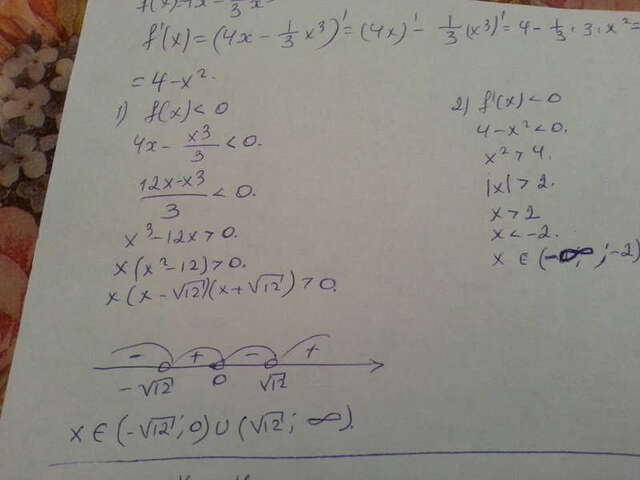 f(x)=4x - 1/3 x³
f'(x) = (4x - 1/3 x³)' = (4x)' - 1/3 (x³)' = 4 - 1/3 · 3 · x² =
= 4 - x².
1) f(x) < 0
4x - x³/3 < 0.
12x-x³/3 < 0.
x³ - 12x > 0.
x(x² - 12) > 0.
x(x - √12)(x + √12) > 0.
- + - +
-√12 0 √12
x ∈ (-√12; 0) ∪ (√12; ∞).
2) f'(x) < 0
4 - x² < 0.
x² > 4.
|x| > 2.
x > 2
x < -2.
x ∈ (-∞; -2)